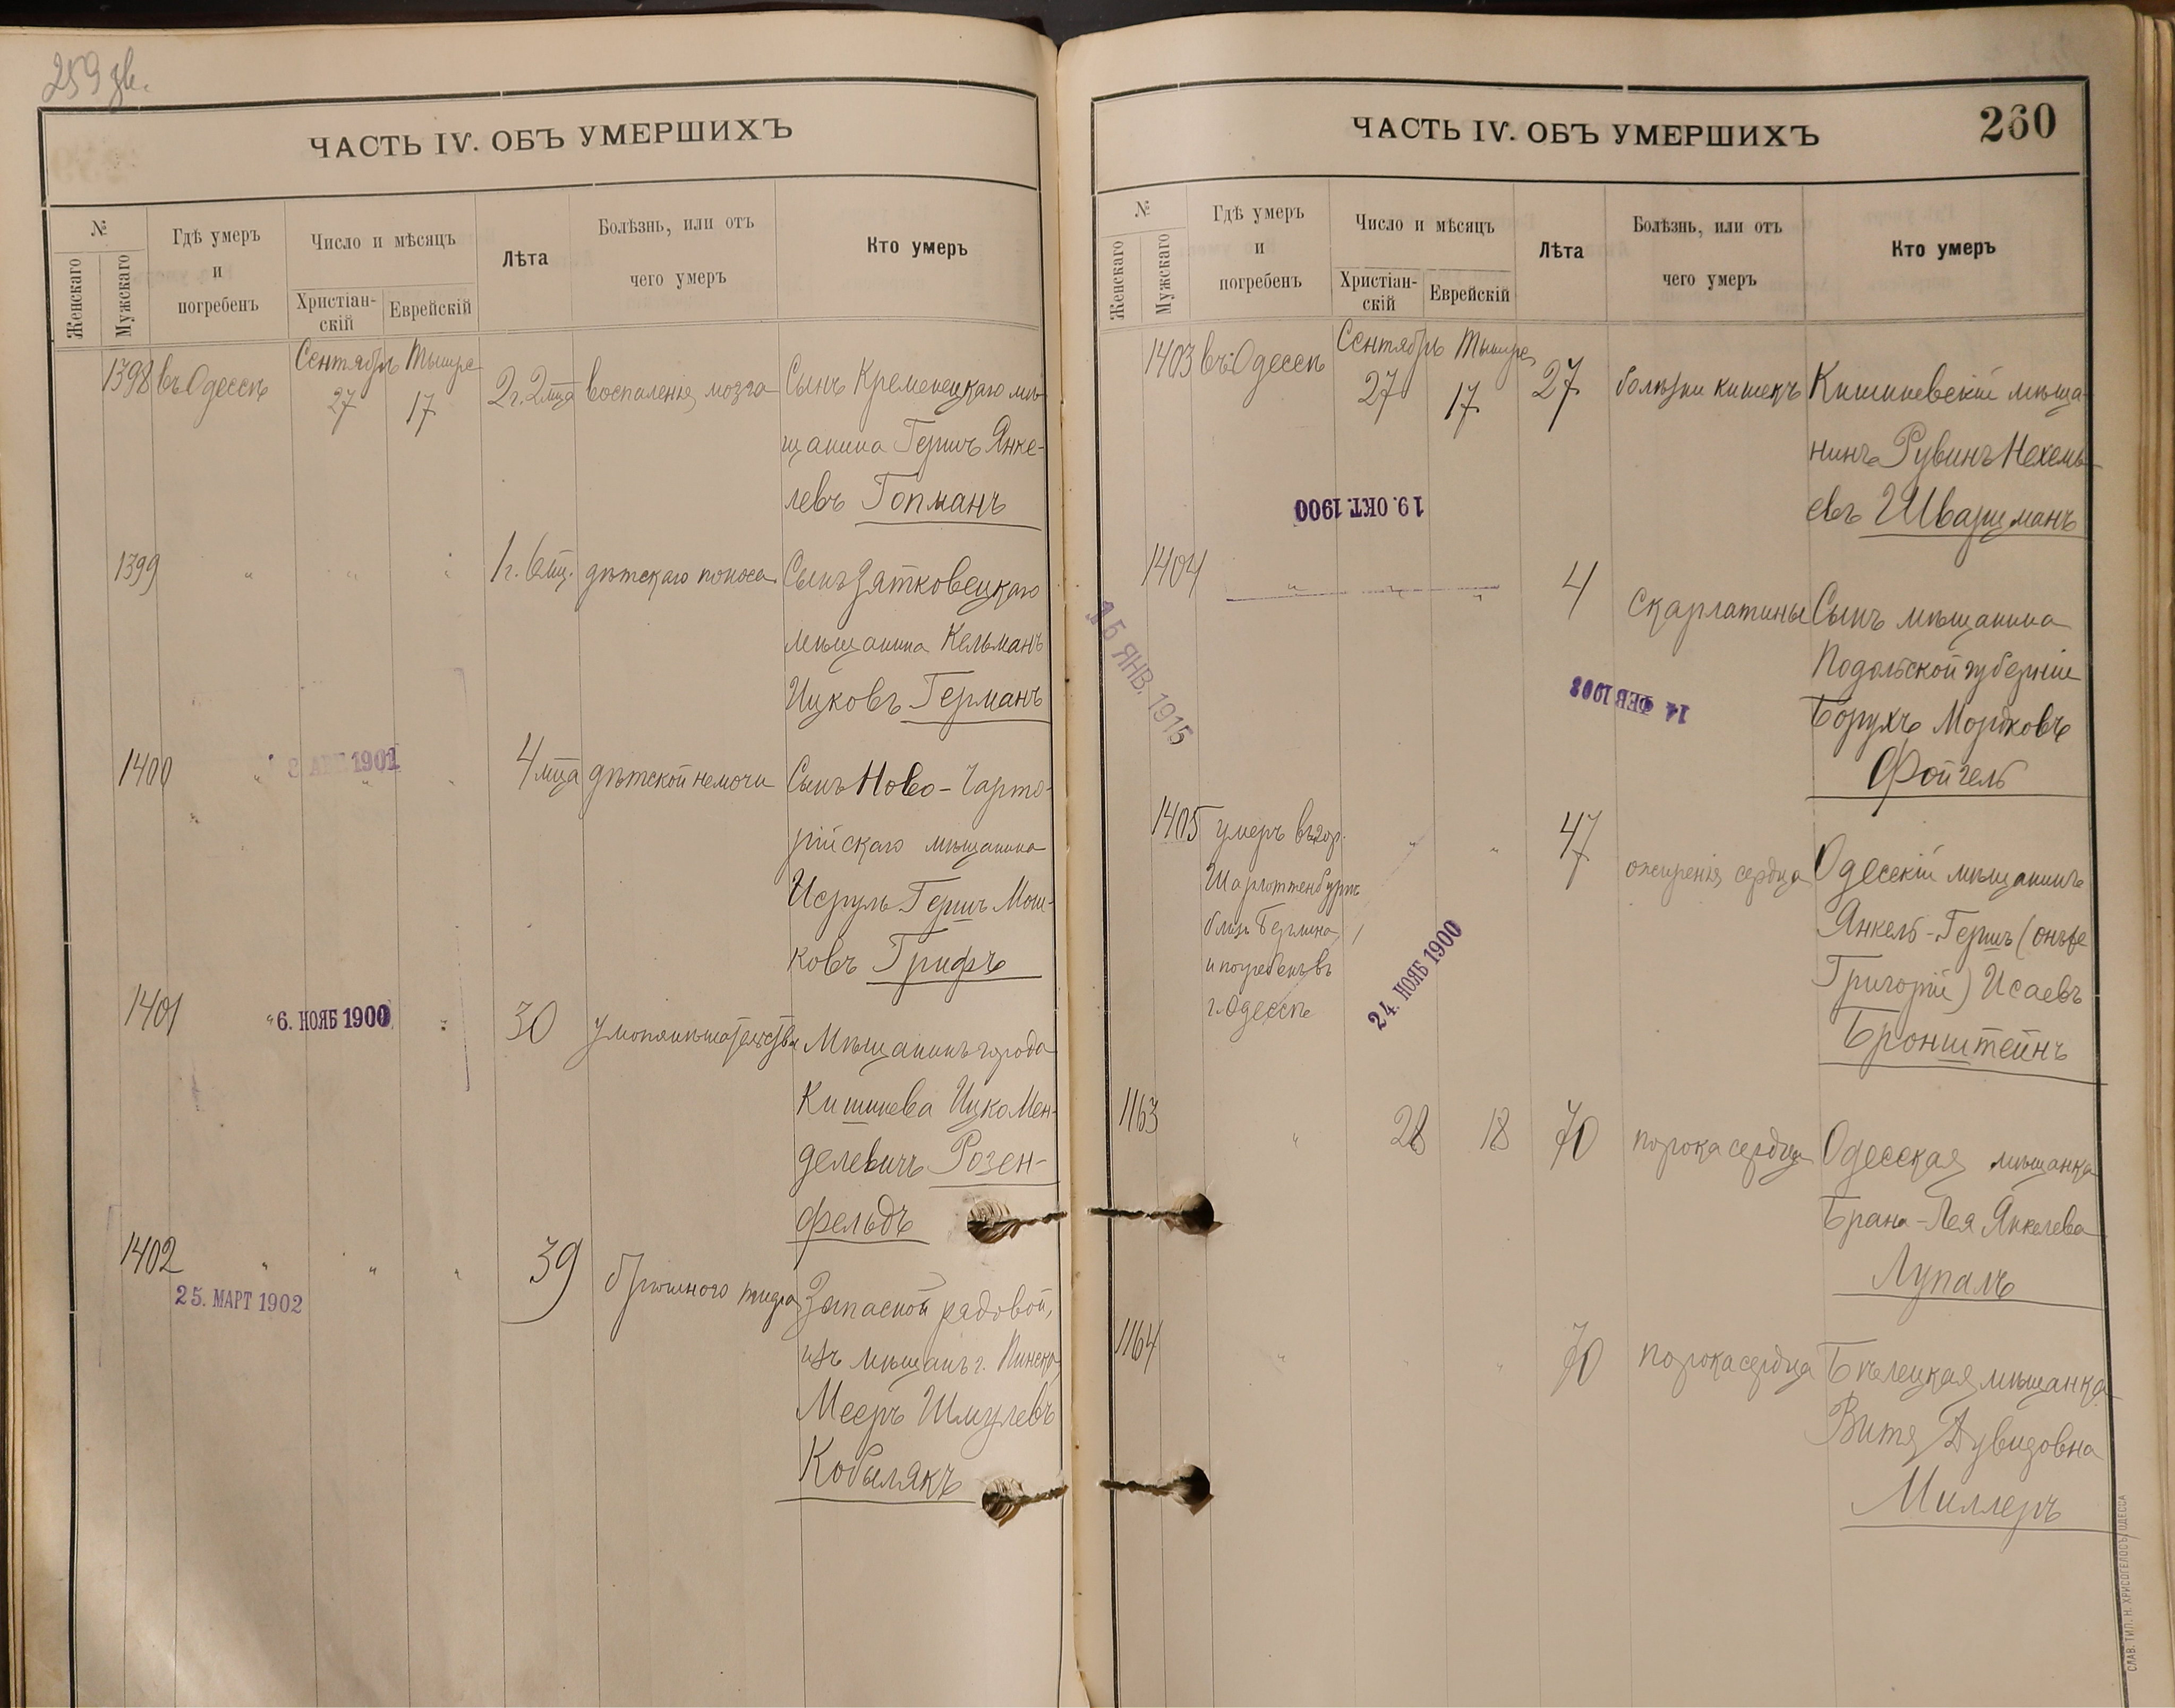 259 зв.
ЧАСТЬ IV. ОБЪ УМЕРШИХЪ
№
Женскаго
Мужскаго
Гдѣ умеръ
и
погребенъ
Число и мѣсяцъ
Христіан-
скій
Еврейскій
Лѣта
Болѣзнь, или отъ
чего умеръ
Кто умеръ
1398 въ Одессѣ
Сентябрь Тышре
27 17
2г. 2 мца
воспаленія мозга
Сынъ Кременецкаго мѣ-
щанина Гершъ Янке-
левъ Гопманъ
1399 " " "
1г. 6 мц.
дѣтскаго поноса
Сынъ Зятковецкаго
мѣщанина Кельманъ
Ицковъ Германъ
1400 " " "
1901
4 мца
дѣтской немочи
Сынъ Ново-Чарто-
рійскаго мѣщанина
Исруль Гершъ Мош-
ковъ Грифъ
1401 " "
6. НОЯБ 1900
30
умопомѣшательства
Мѣщанинъ города
Кишинева Ицко Мен-
делевичъ Розен-
фельдъ
1402 " " "
25. МАРТ 1902
39
брюшного тифа
Запасной рядовой,
изъ мѣщанъ г. Пинска
Мееръ Шмулевъ
Кобылякъ
ЧАСТЬ IV. ОБЪ УМЕРШИХЪ
260
№
Женскаго
Мужскаго
Гдѣ умеръ
и
погребенъ
Число и мѣсяцъ
Христіан-
скій
Еврейскій
Лѣта
Болѣзнь, или отъ
чего умеръ
Кто умеръ
1403 въ Одессѣ
Сентябрь Тышре
27 17
27
болѣзни кишекъ
Кишиневскій мѣща-
нинъ Рувинъ Нехемь-
евъ Шварцманъ
19. ОКТ. 1900
1404 " " "
4
скарлатины
Сынъ мѣщанина
Подольской губерніи
Борухъ Мордковъ
Фойгель
15 ЯНВ. 1915
14 ФЕВ 1908
1405
умеръ въ гор.
Шарлоттенбургѣ
близъ Берлина,
и погребенъ въ
г. Одессѣ
" "
24. НОЯБ 1900
47
ожиренія сердца
Одесскій мѣщанинъ
Янкель-Гершъ (онъ же
Григорій) Исаевъ
Бронштейнъ
1163 "
28 18
70
порока сердца
Одесская мѣщанка
Брана-Лея Янкелева
Лупалъ
1164 " " "
70
порока сердца
Бѣлецкая мѣщанка
Витя Дувидовна
Миллеръ
СЛАВ. ТИП. Н. ХРИСОГЕЛОСЪ, ОДЕССА